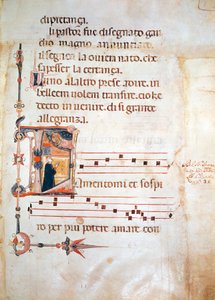 di pietança.
lipastor fue disegnato gau
dio magno annunciato.
il segnor a uoi e nato che
sapesser la certança.
Luno alaltro prese adire. in
belleem uolem transire. cio ke
decto inuenire. di si grante
allegrança.
Lamentomi et sospi
ro per piu potere amare con